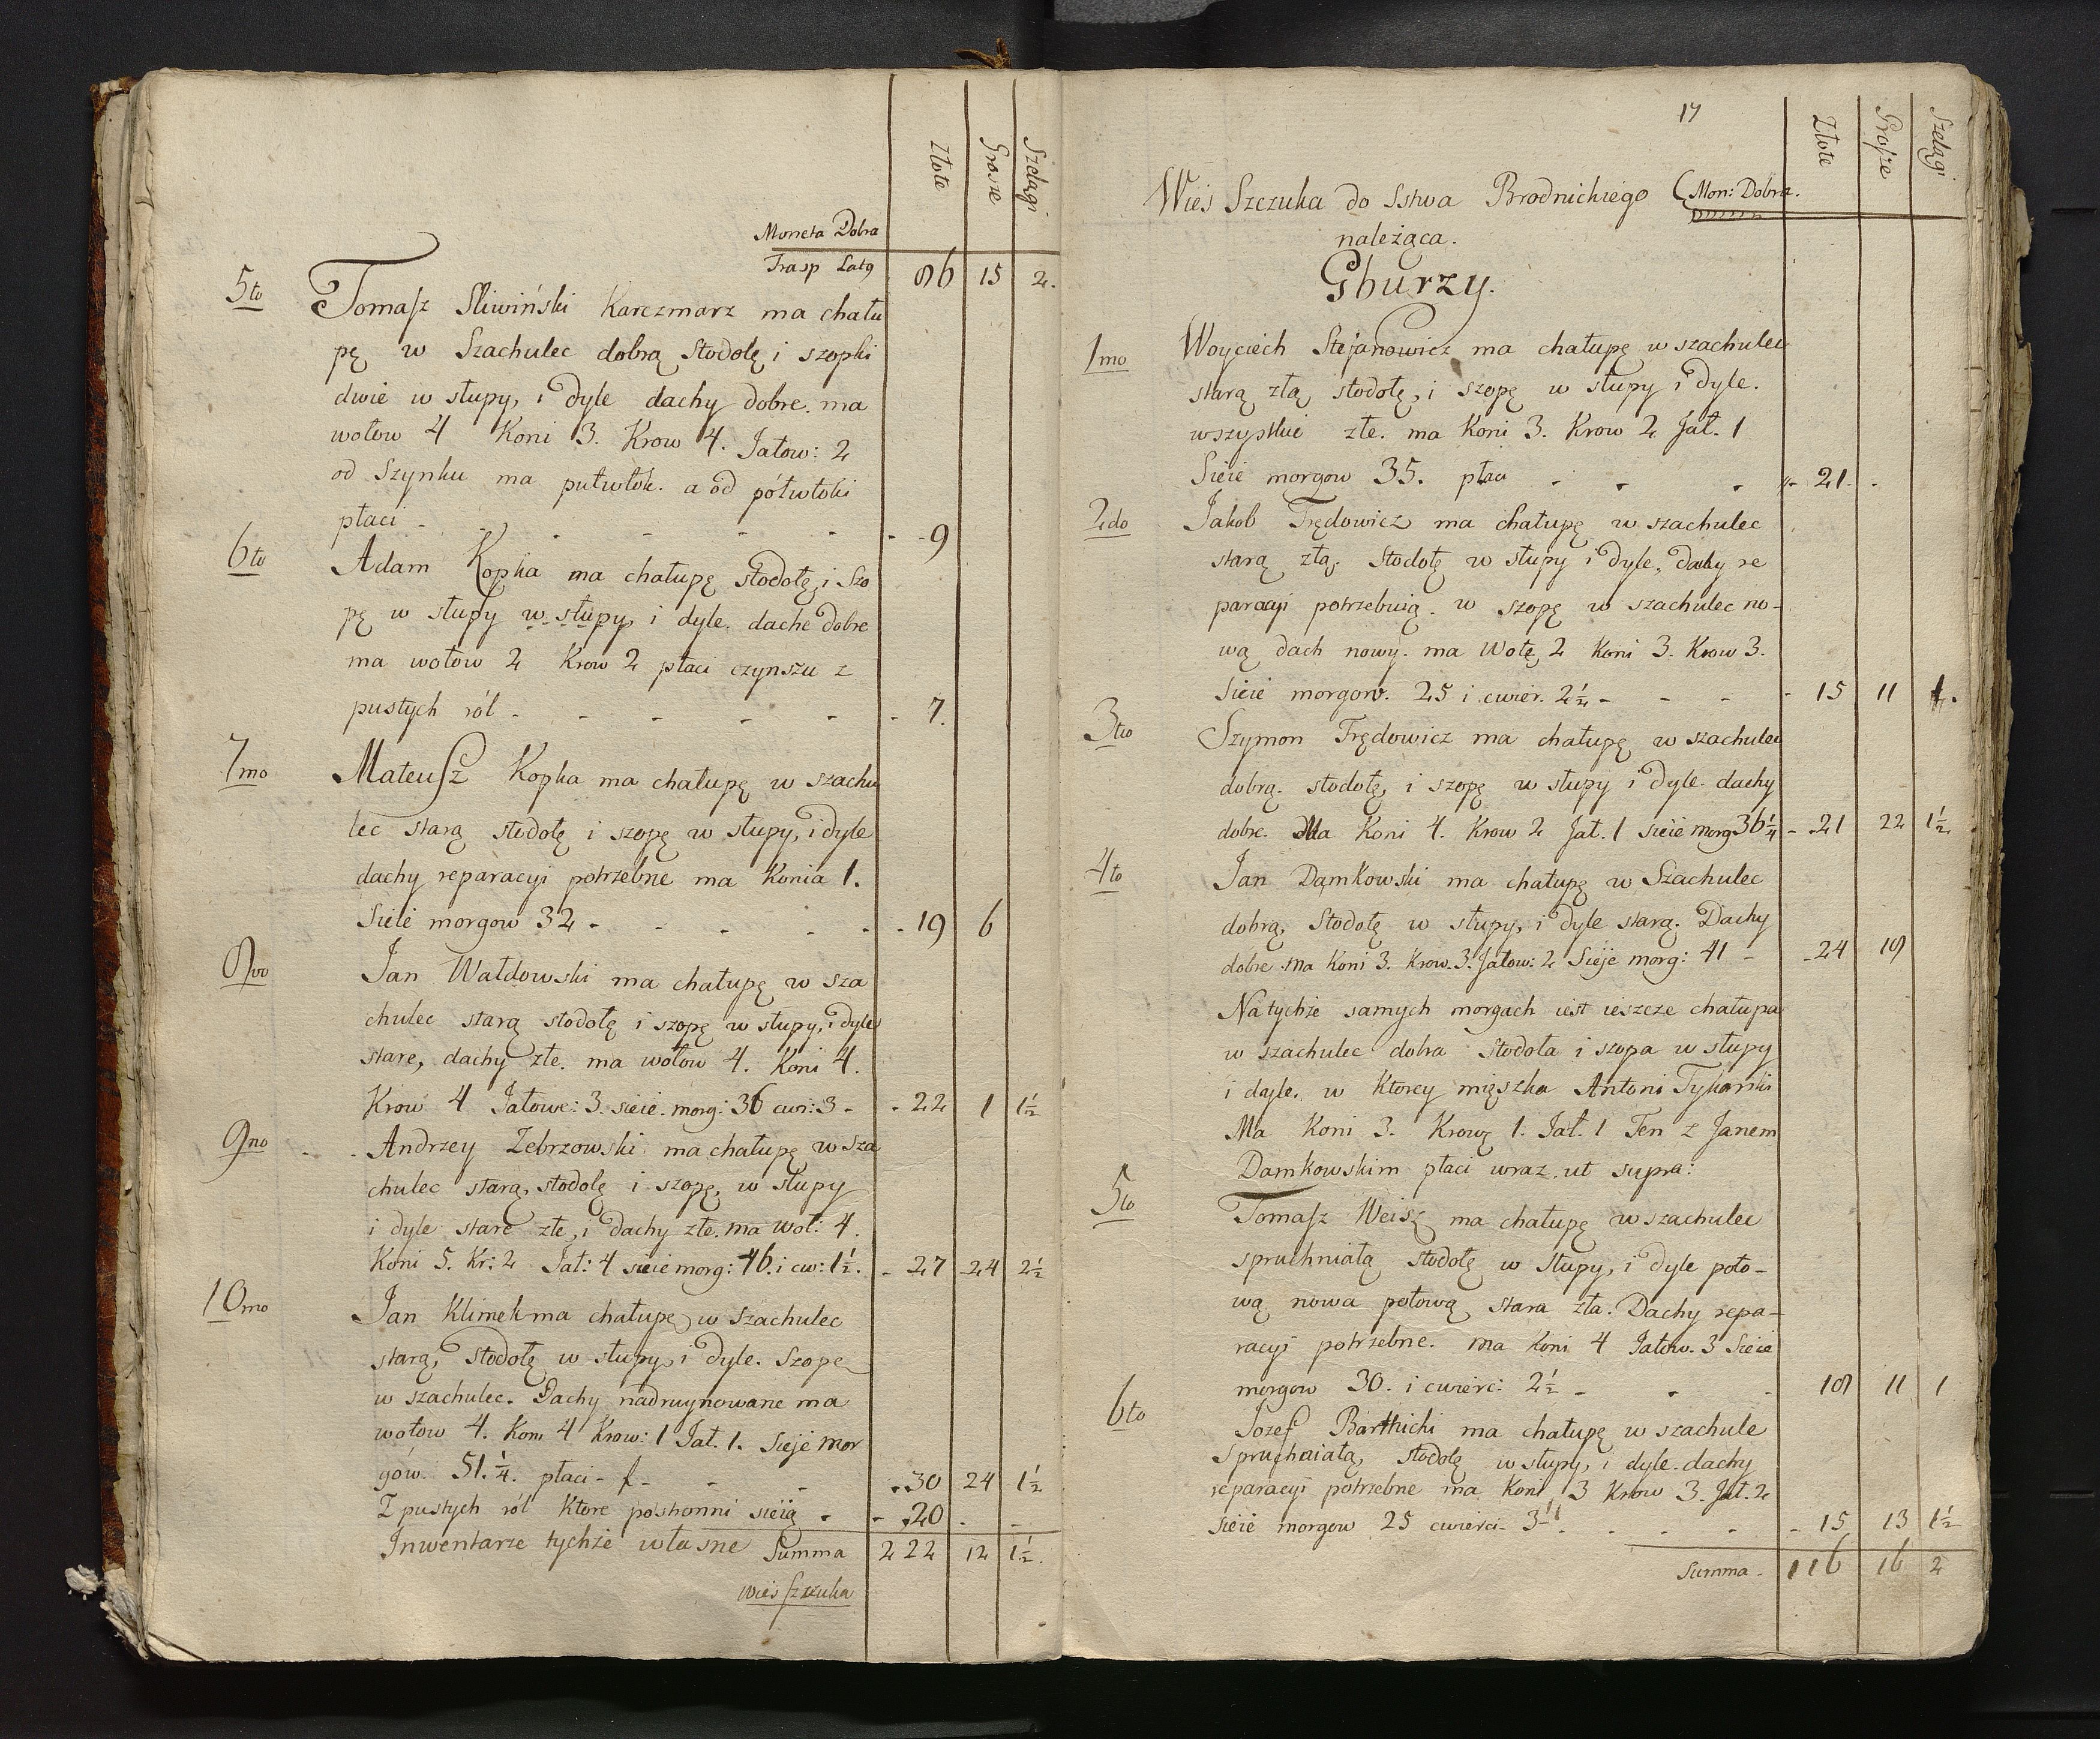 Złote Grosze Szelągi
Moneta Dobra
Trasp Latq 86 15 2.
5to Tomasz Sliwiński Karczmarz ma chału
pę w Szachulec dobrą Stodołę i szopki
dwie w słupy, i dyle dachy dobre. ma
wołow 4 Koni 3. Krow 4. Jałow: 2
od Szynku ma pułwłok. a od półwłoki
płaci - - - - - - - 9
6to Adam Kopka ma chałupę stodołę, i Szo
pę w słupy w słupy, i dyle. dache dobre
ma wołow 2 Krow 2 płaci czynszu z
pustych ról - - - - - - 7.
7mo Mateusz Kopka ma chałupę w szachu
lec starą stodołę i szopę w słupy, i dyle
dachy reparacyi potrzebne ma Konia 1.
Sieie morgow 32 - - - - - - 19 6
8vo Jan Wałdowski ma chałupę w sza
chulec starą stodołę i szopę w słupy, i dyle
stare, dachy złe. ma wołow 4. Koni 4.
Krow 4 Jałowc: 3. sieie. morg: 36 cwi: 3 - - 22 1 1½
9no - - Andrzey Zebrzowski ma chałupę w Sza
chulec starą, stodołę i szopę, w słupy
i dyle stare złe, i dachy złe. ma woł: 4.
Koni 5. Kr: 2 Jał: 4 sieie morg: 46. i cw: 1½. - 27 24 2½
10mo Jan Klimek ma chałupę w Szachulec
starą, Stodołę w słupy, i dyle. Szopę
w szachulec. Dachy nadruynowane ma
wołow 4. Koni 4 Krow: 1 Jał. 1. Sieje mor
gów. 51.¼. płaci - f - - - 30 24 1½
Z pustych ról Ktore postronni sieią - - 20 . -
Inwentarze tychże własne Summa 222 12 1½.
Wieś Szczuka
17
Złote Grosze Szelągi
Wieś Szczuka do Sstwa Brodnickiego (Mon: Dobra.
należąca.
Gburzy.
1mo Woyciech Stefanowicz ma chałupę w szachulec
starą złą, stodołę, i szopę w słupy i dyle.
wszystkie złe. ma Koni 3. Krow 2 Jał. 1
Sieie morgow 35. płaci - - - 21. .
2do Jakob Trędowicz ma chałupę w szachulec
starą złą. Stodołę w słupy i dyle, dachy re
paracyi potrzebuią. w szopę w szachulec no-
wą dach nowy. ma Wołę 2 Koni 3. Krow 3.
Sieie morgow. 25 i cwier. 2½ - - - - 15 11 1.
3tio Szymon Trędowicz ma chałupę w szachulec
dobrą. stodołę i szopę w słupy i dyle. dachy
dobre. Ma Koni 4. Krow 2 Jał. 1 sieie morg 36¼ - 21 22 1½
4to Jan Damkowski ma chałupę w Szachulec
dobrą, Stodołę w słupy, i dyle starą. Dachy
dobre ma Koni 3. Krow. 3. Jałow: 2 Sieje morg: 41 - - 24 18
Na tychże samych morgach iest ieszcze chałupa
w szachulec dobra Stodoła i szopa w słupy
i dyle. w Ktorey mięszka Antoni Tykarski
Ma Koni 3. Krowę 1. Jał. 1 Ten z Janem
Damkowskim płaci wraz. ut supra:
5to Tomasz Weisz ma chałupę w szachulec
spruchniałą stodołę w słupy, i dyle poło-
wą nowa połową stara zła. Dachy repa-
racyi potrzebne. ma Koni 4 Jałow. 3 Sieie
morgow 30. i cwierć: 2½ - - - 18 11 1
6to Jozef Barthicki ma chałupę w szachule
Spruchniałą, stodołę w słupy, i dyle. dachy
reparacyi potrzebne ma Koni 3 Krow 3. Jał. 2
Sieie morgow 25 cwierci - 3 - - - - - 15 13 1½
Summa - 116 16 2